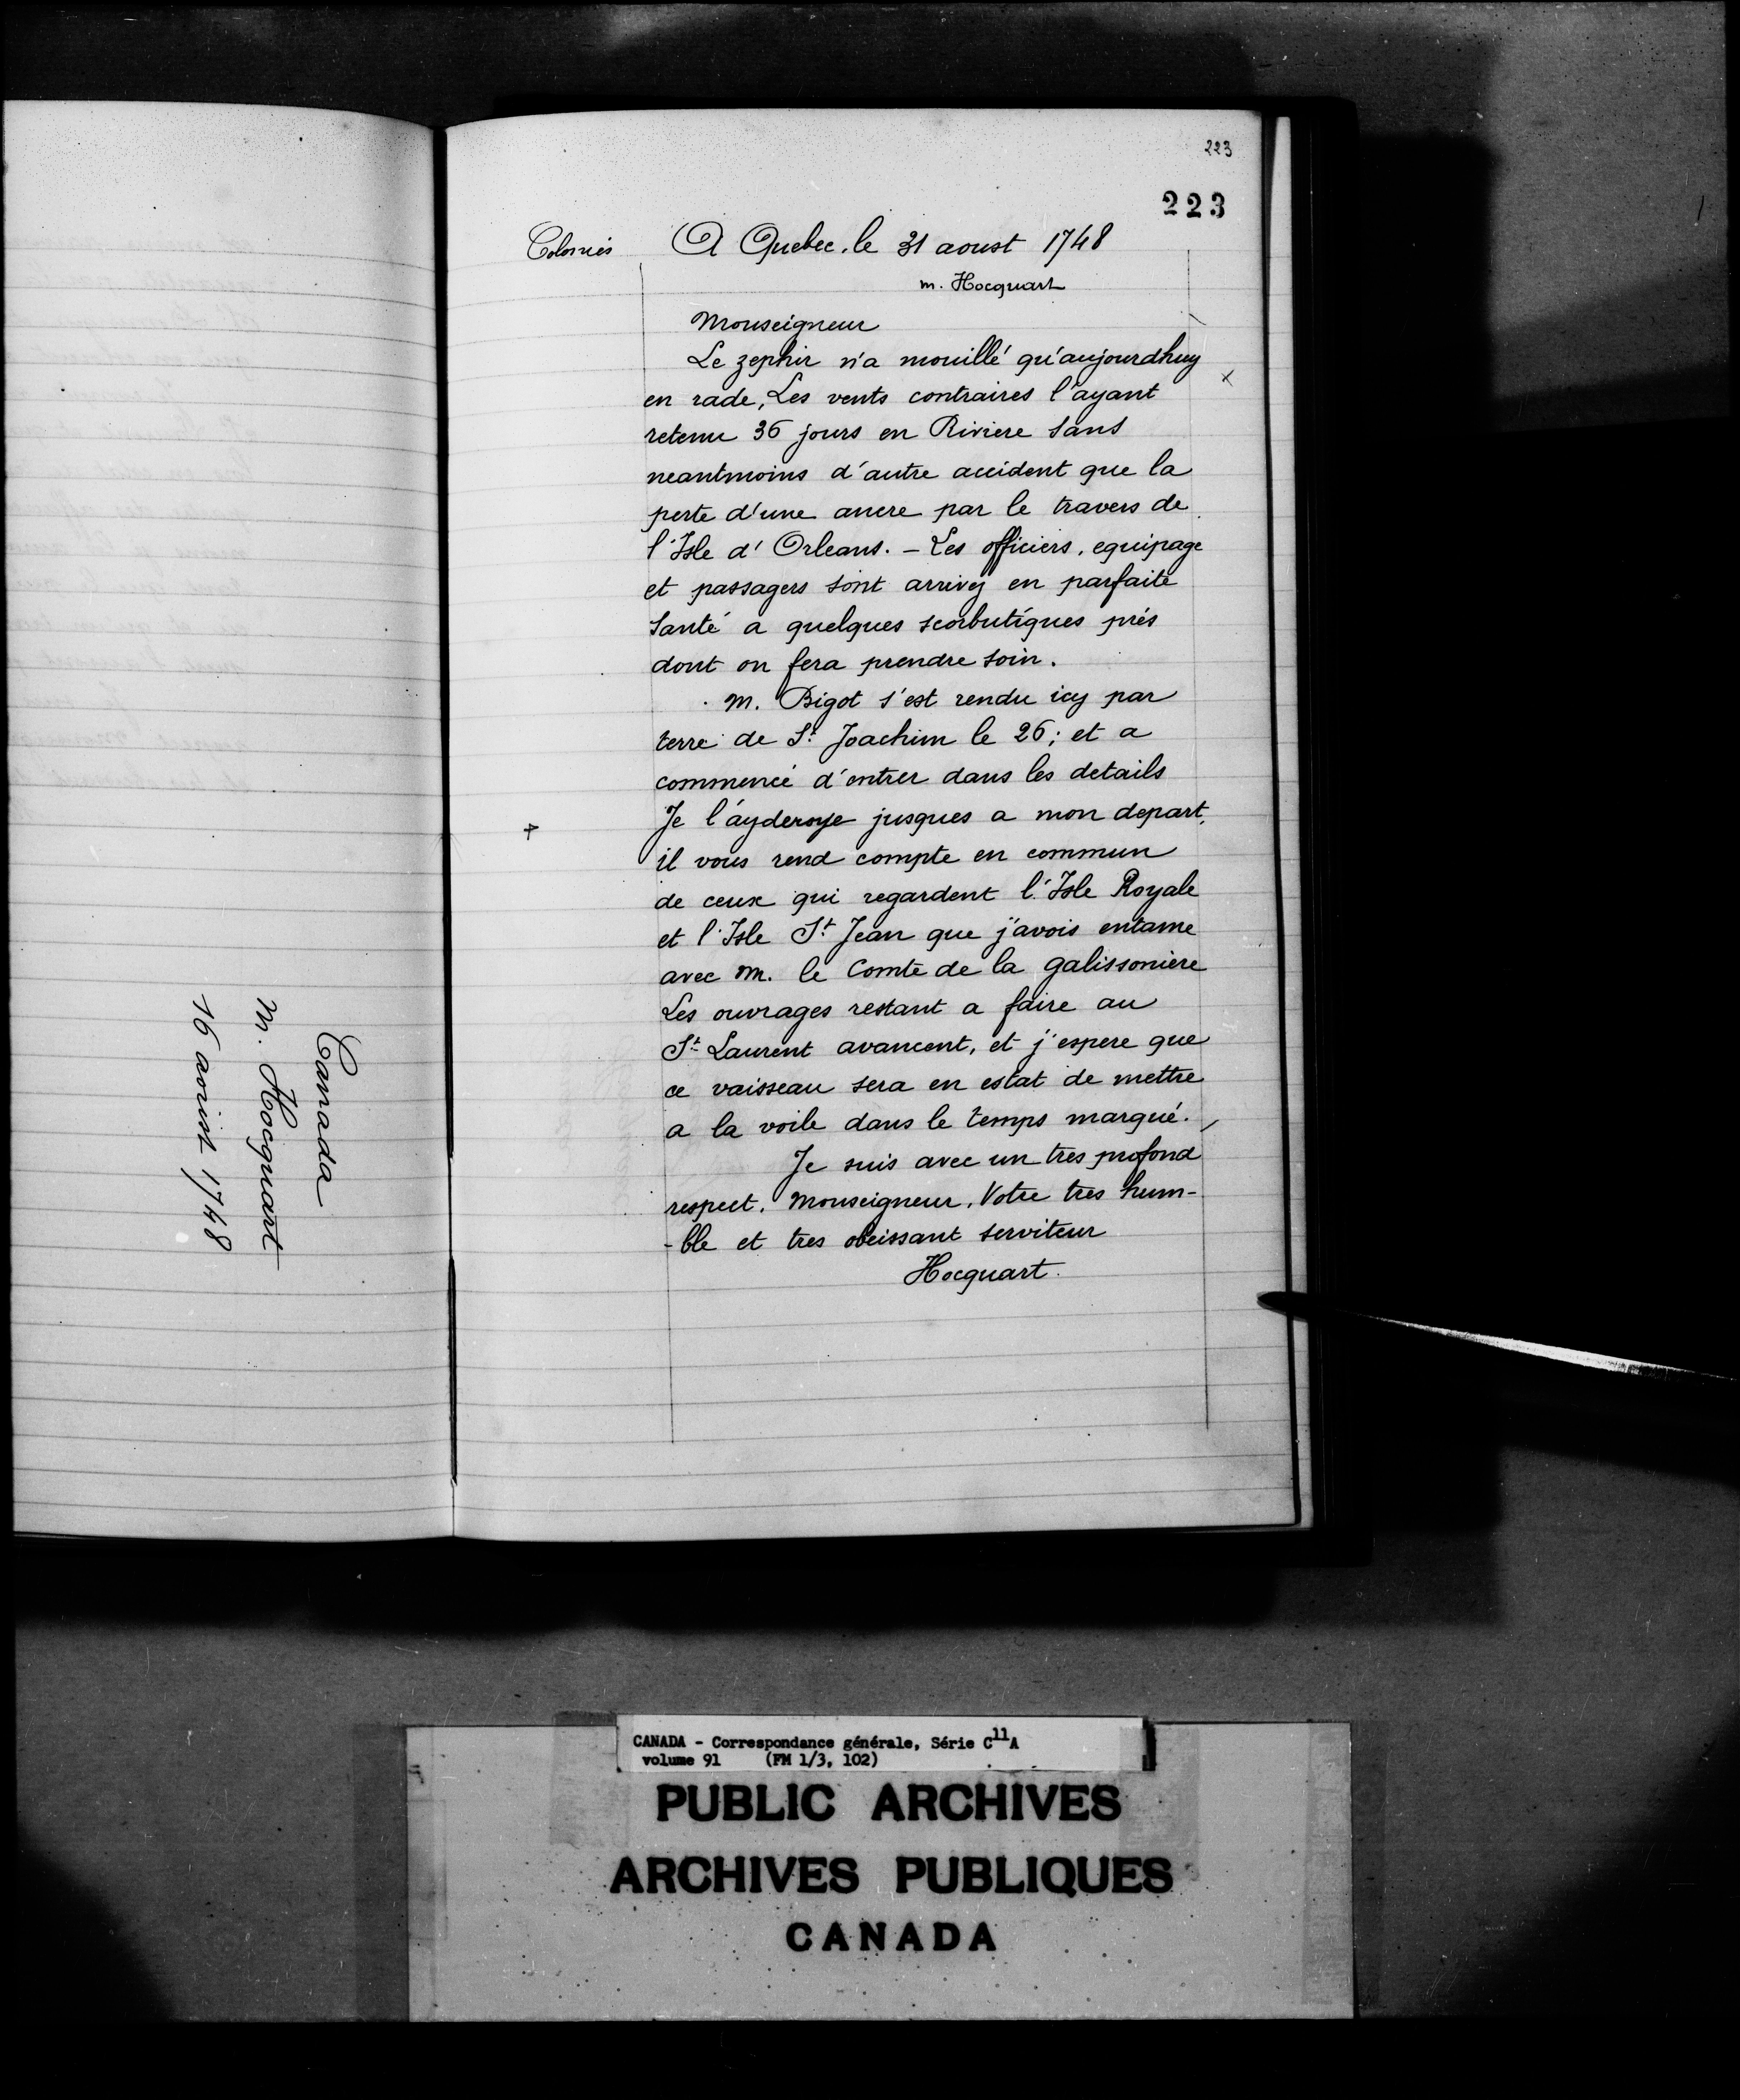 Canada
M. Hocquart
16 aoust 1748
223
223
Colonies
A Quebec, le 31 aoust 1748
m. Hocquart
Monseigneur
Le zephir n'a mouillé qu'aujourdhuy
en rade, Les vents contraires l'ayant
retenu 36 jours en Riviere sans
neantmoins d'autre accident que la
perte d'une ancre par le travers de
l'Isle d'Orleans. – Les officiers, equipage
et passagers sont arrivez en parfaite
santé a quelques scorbutiques prés
dont on fera prendre soin.
M. Bigot s'est rendu icy par
terre de St. Joachim le 26; et a
commencé d'entrer dans les details
Je l'ayderoye jusques a mon depart,
il vous rend compte en commun
de ceux qui regardent l'Isle Royale
et l'Isle St Jean que j'avois entame
avec M. le Comte de la galissoniere
Les ouvrages restant a faire au
St Laurent avancent, et j'espere que
ce vaisseau sera en estat de mettre
a la voile dans le temps marqué.
Je suis avec un tres profond
respect, Monseigneur, Votre tres hum-
-ble et tres obeissant serviteur
Hocquart.
CANADA - Correspondance générale, Série C11A
volume 91 (FM 1/3, 102)
PUBLIC ARCHIVES
ARCHIVES PUBLIQUES
CANADA